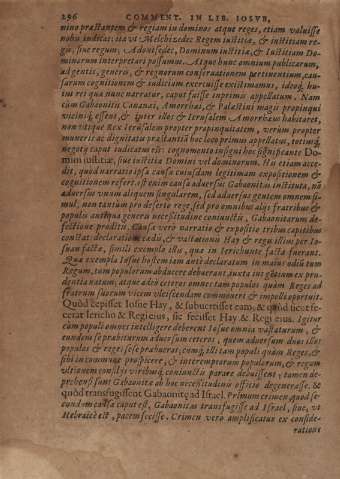 296 COMMENT. IN LIB. IOSVE,
nino præstantem & regiam in dominos atque reges, etiam valuisse
nobis indicat: ita vt Melchizedec Regem iustitiæ, & iustitiam re-
gis, siue regum; Adonisedec, Dominum iustitiæ, & Iustitiam Do-
minorum interpretari possumus. Atque hunc omnium publicarum,
ad gentis, generis, & regnorum conseruationem pertinentium, cau-
sarum cognitionem & iudicium exercuisse existimamus, ideoq́ hu-
ius rei qua nunc narratur, caput fuisse suspicimus appellatum. Nam
cùm Gabaonitis Cananæi, Amorrhæi, & Palæstini magis propinqui
vicini q́ essent, & inter illos & Ierusalem Amorrhæus habitaret,
non vtique Rex Ierusalem propter propinquitatem, verùm propter
muneris ac dignitatis præstantiam hoc loco primus appellatus, totiusq́
negoty caput indicatus est: cognomento insignis hoc significante Do-
mini iustitiæ, siue iustitia Domini vel dominorum. Huc etiam acce-
dit, quòd narratio ipsa causæ cuiusdam legitimam expositionem &
cognitionem refert. ipse enim causa aduersus Gabaonitas instituta, nõ
aduersus vnum aliquem singularem, sed aduersus gentem omnem si-
mul, non tantùm pro deserto rege, sed pro omnibus alijs fratribus &
populis antiqua generis necessitudine coniunctis, Gabaonitarum de-
fectione proditis. Causa verò narratio & expositio tribus capitibus
constat: declaratione cædis, & vastationis Hay & regis illius per Io-
suam facta, simili exemplo illi, quæ in Ierichunte facta fuerant.
Qua exempla Iosue hostem iam antè declaratum in maius odiũ tum
Regum, tum populorum abducere debuerant, iuxta ingenium ex pru-
dentia natum: atque adeò cæteros omnes tam populos quàm Reges ad
fratrum suorum vicem vlciscendam commouere & impellere oportuit.
Quòd cepisset Iosue Hay, & subuertisset eam, & quòd sicut fe-
cerat Iericho & Regi eius, sic fecisset Hay & Regi eius. Igitur
cùm populi omnes intelligere deberent Iosue omnia vastaturum, &
eundem se præbiturum aduersum ceteros, quem aduersum duos illos
populos & reges sese præbuerat; conuq́ ista tam populi quàm Reges, &
sibi in commune prospicere, & interemptorum populorum, & regum
vltionem consilijs viribusq́ coniunctis parare debuissent: tamen de-
prehensi sunt Gabaonitæ ab hoc necessitudinis officio degenerasse. &
quòd transfugissent Gabaonitæ ad Israel. Primum crimen, quod se-
cundum causa caput est, Gabaonitas transfugisse ad Israel, siue, vt
Hebraicè est, pacem fecisse. Crimen verò amplificatur ex conside-
ratione